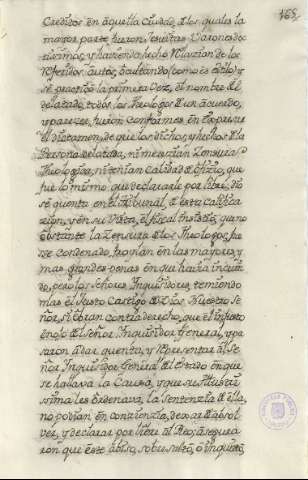 168.
Creditos en aquella Ciudad, de los quales la
mayor parte fueron Jesuitas Varones doc
tissimos, y haviendo hecho Relazion de los
Referidos autos, baciando (como es estilo) y
se practicò la primera vez, el nombre del
delatado, todos los Theologos de un acuerdo,
y parezer, fueron conformes, en expresar
el dictamen, de que los dichos, y hechos de la
Persona delatada, ni merezian Zensura
Theologica, ni tenian Calidad de Oficio, que
fue lo mismo, que declararle por libre, diò
se quenta en el Tribunal, de esta califica
zion, y en su vista, el fiscal insistiò, que no
obstante la Zensura de los Theologos, fue
se condenado, fray en las mayores, y
mas grandes penas en que havia incurri
do, pero los Señores Inquisidores, temiendo
mas el Justo Castigo de Dios Nuestro Se
ñor, si obran contra derecho, que el injusto
enojo del Señor Inquisidor General, y pa
saron a dar quenta, y representar al Se
ñor Inquisidor General el estado en que
se hallava la Causa, y que su Illustri
ssima les ordenava, la Sentenzia de ella,
no podian en conzienzia, dexar de absol
ver, y declarar por libre al Reo, asegura
ron que este aviso, sobresaltò, è inquietò,